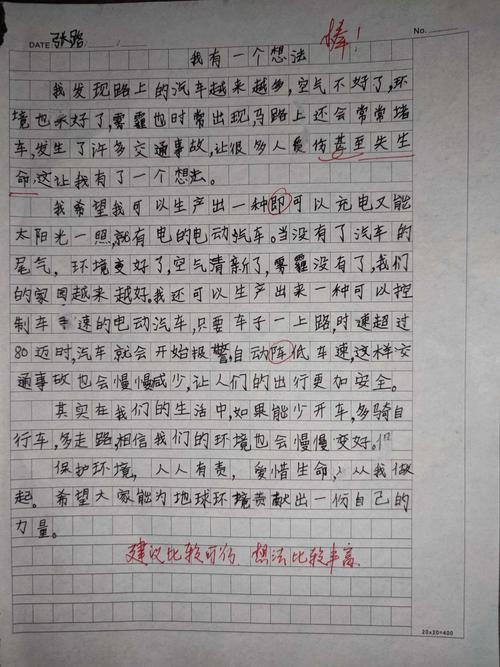 棒!
DATE 张贻 No.
我有一个想法
我发现路上的汽车越来越多,空气不好了,环
境也不好了,雾霾也时常出现,马路上还会常常堵
车,发生了许多交通事故,让很多人员伤甚至失生
命,这让我有了一个想法。
我希望我可以生产出一种即可以充电又能
太阳光一照,就有电的电动汽车。当没有了汽车的
尾气,环境变好了,空气清新了,雾霾没有了,我们
的家园越来越好。我还可以生产出来一种可以控
制车速的电动汽车,只要车子一上路,时速超过
80迈时,汽车就会开始报警,自动阵低车速,这样交
通事故也会慢慢减少,让人们的出行更加安全。
其实在我们的生活中,如果能少开车,多骑自
行车,多走路,相信我们的环境也会慢慢变好。
保护环境,人人有责,爱惜生命,从我做
起。希望大家能为地球环境贡献出一份自己的
力量。
建议比较可行 想法比较丰富
20×20=400